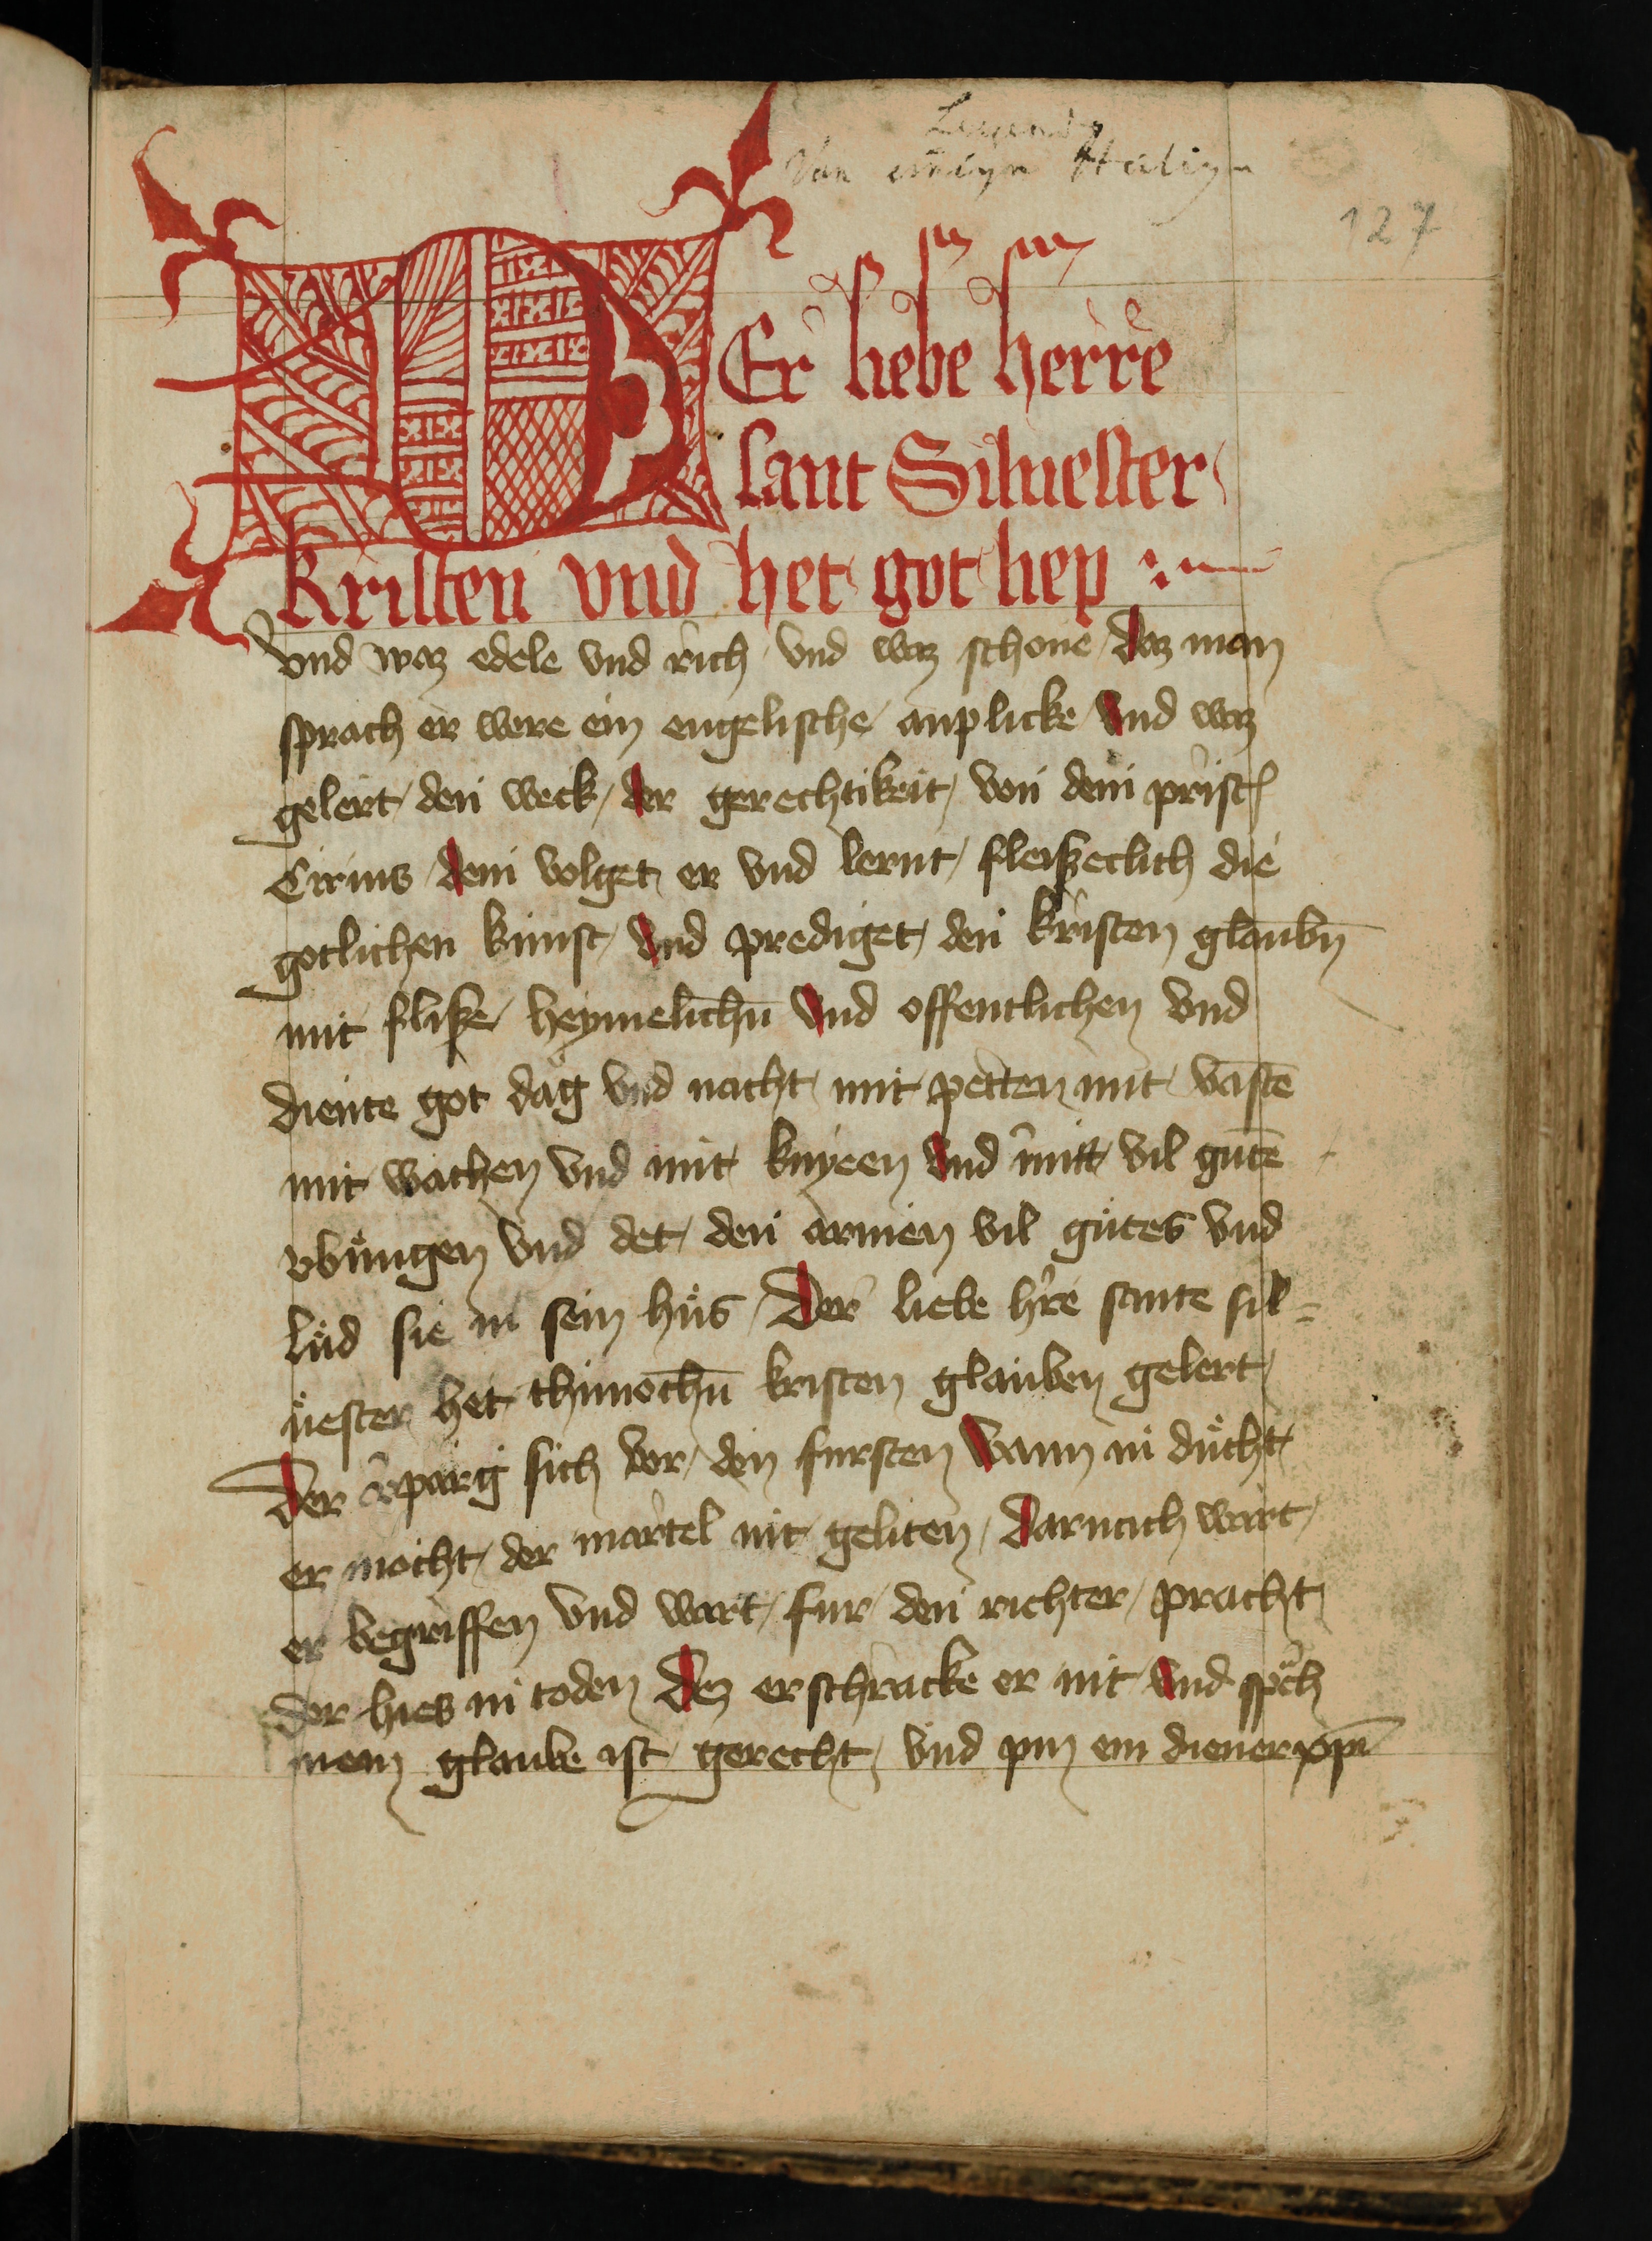 Legende
Von einigen Heiligen
127
DEr liebe herre
sant Siluester
kristen vnd het got liep
vnd waz edele vnd rich vnd waz schone daz man
sprach er were ein engelische anplicke vnd waz
gelert den weck der gerechtikeit von dem prister
Cirinus dem volget er vnd lernt fleiszeclich die
gotlichen kunst vnd prediget den kristen glaubn̄
mit flisze heymelichn̄ vnd offentlichen vnd
diente got dag vnd nacht mit petten mit vastē
mit wachen vnd mit knyeen vnd mitt vil gutē
vbungen vnd det den armen vil gutes vnd
lud sie in sein hus Der liebe h're sante sil=
uester het thimotheū kristen glauben gelert
Der v'parg sich vor den fursten wann in ducht
er mocht der martel nit geliten Darnach wart
er begriffen vnd wart fur den richter pracht
der hies in toden Dez erschracke er nit vnd sp'ch
mein glaube ist gerecht vnd pin ein diener xp̄i